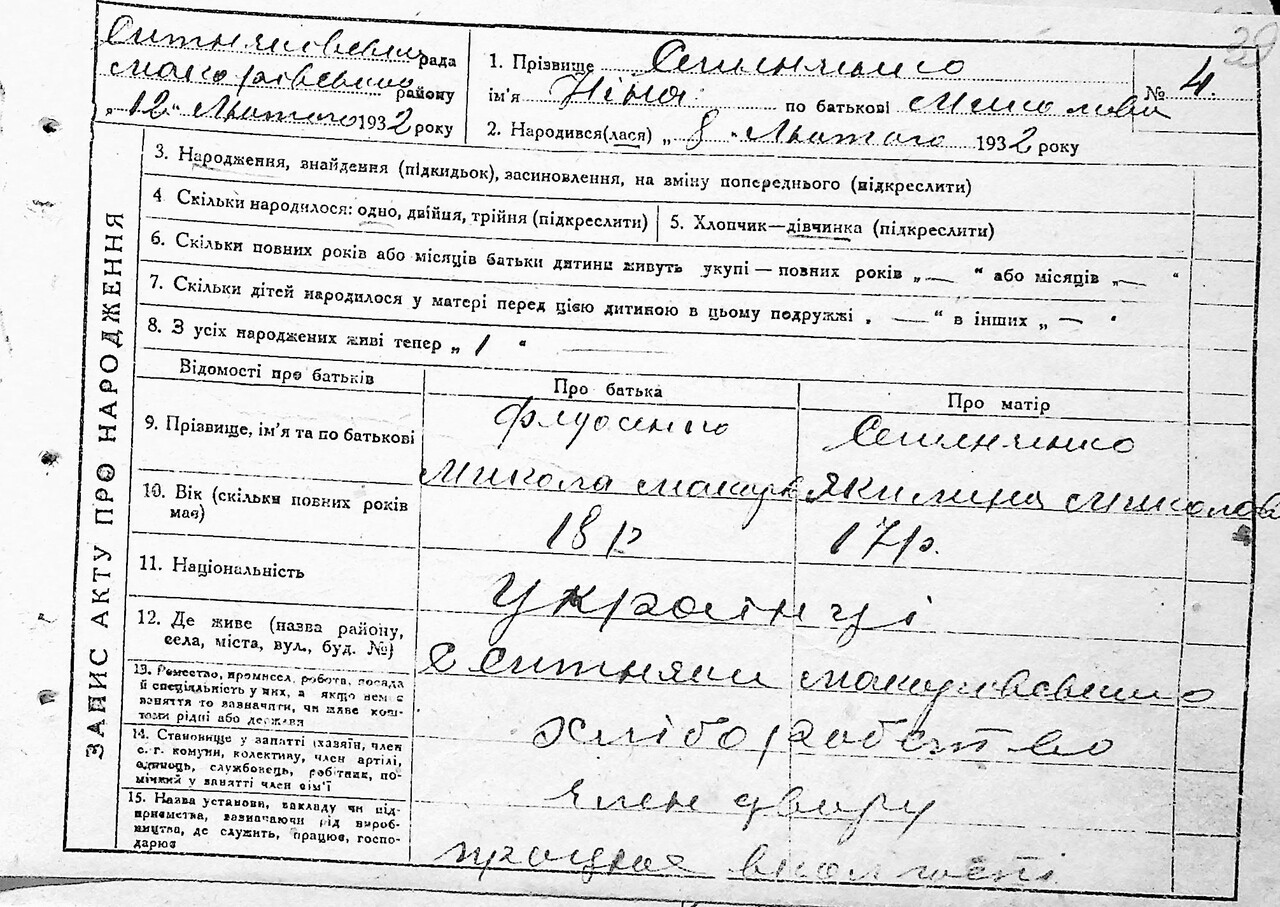 39
Ситняківська рада
Макарівського району
„12“ Лютого 1932 року
1. Прізвище
ім'я Ніна по батькові Миколаївна
2. Народився(лася) „8“ Лютого 1932 року
№ 4.
ЗАПИС АКТУ ПРО НАРОДЖЕННЯ
3. Народження, знайдення (підкидьок), засиновлення, на зміну попереднього (підкреслити)
4 Скільки народилося: одно, двійня, трійня (підкреслити)
5. Хлопчик—дівчинка (підкреслити)
6. Скільки повних років або місяців батьки дитини живуть укупі — повних років „—“ або місяців „—“
7. Скільки дітей народилося у матері перед цією дитиною в цьому подружжі „—“ в інших „—“
8. З усіх народжених живі тепер „1“
Відомості про батьків
Про батька
Про матір
9. Прізвище, ім'я та по батькові
Микола Макарів
Якилина
10. Вік (скільки повних років має)
18 р
17 р.
11. Національність
Українці
12. Де живе (назва району, села, міста, вул., буд. №)
с Ситняки Макарівського
13. Ремество, промисел, робота, посада й спеціальність у них, а якщо немає заняття то зазначити, чи живе коштами рідні або держави
хліборобство
14. Становище у занятті (хазяїн, член с.-г. комуни, колективу, член артілі, одинець, службовець, робітник, помічний у занятті член сім'ї
член двору
15. Назва установи, закладу чи підприємства, зазначаючи рід виробництва, де служить, працює, господарює
працює